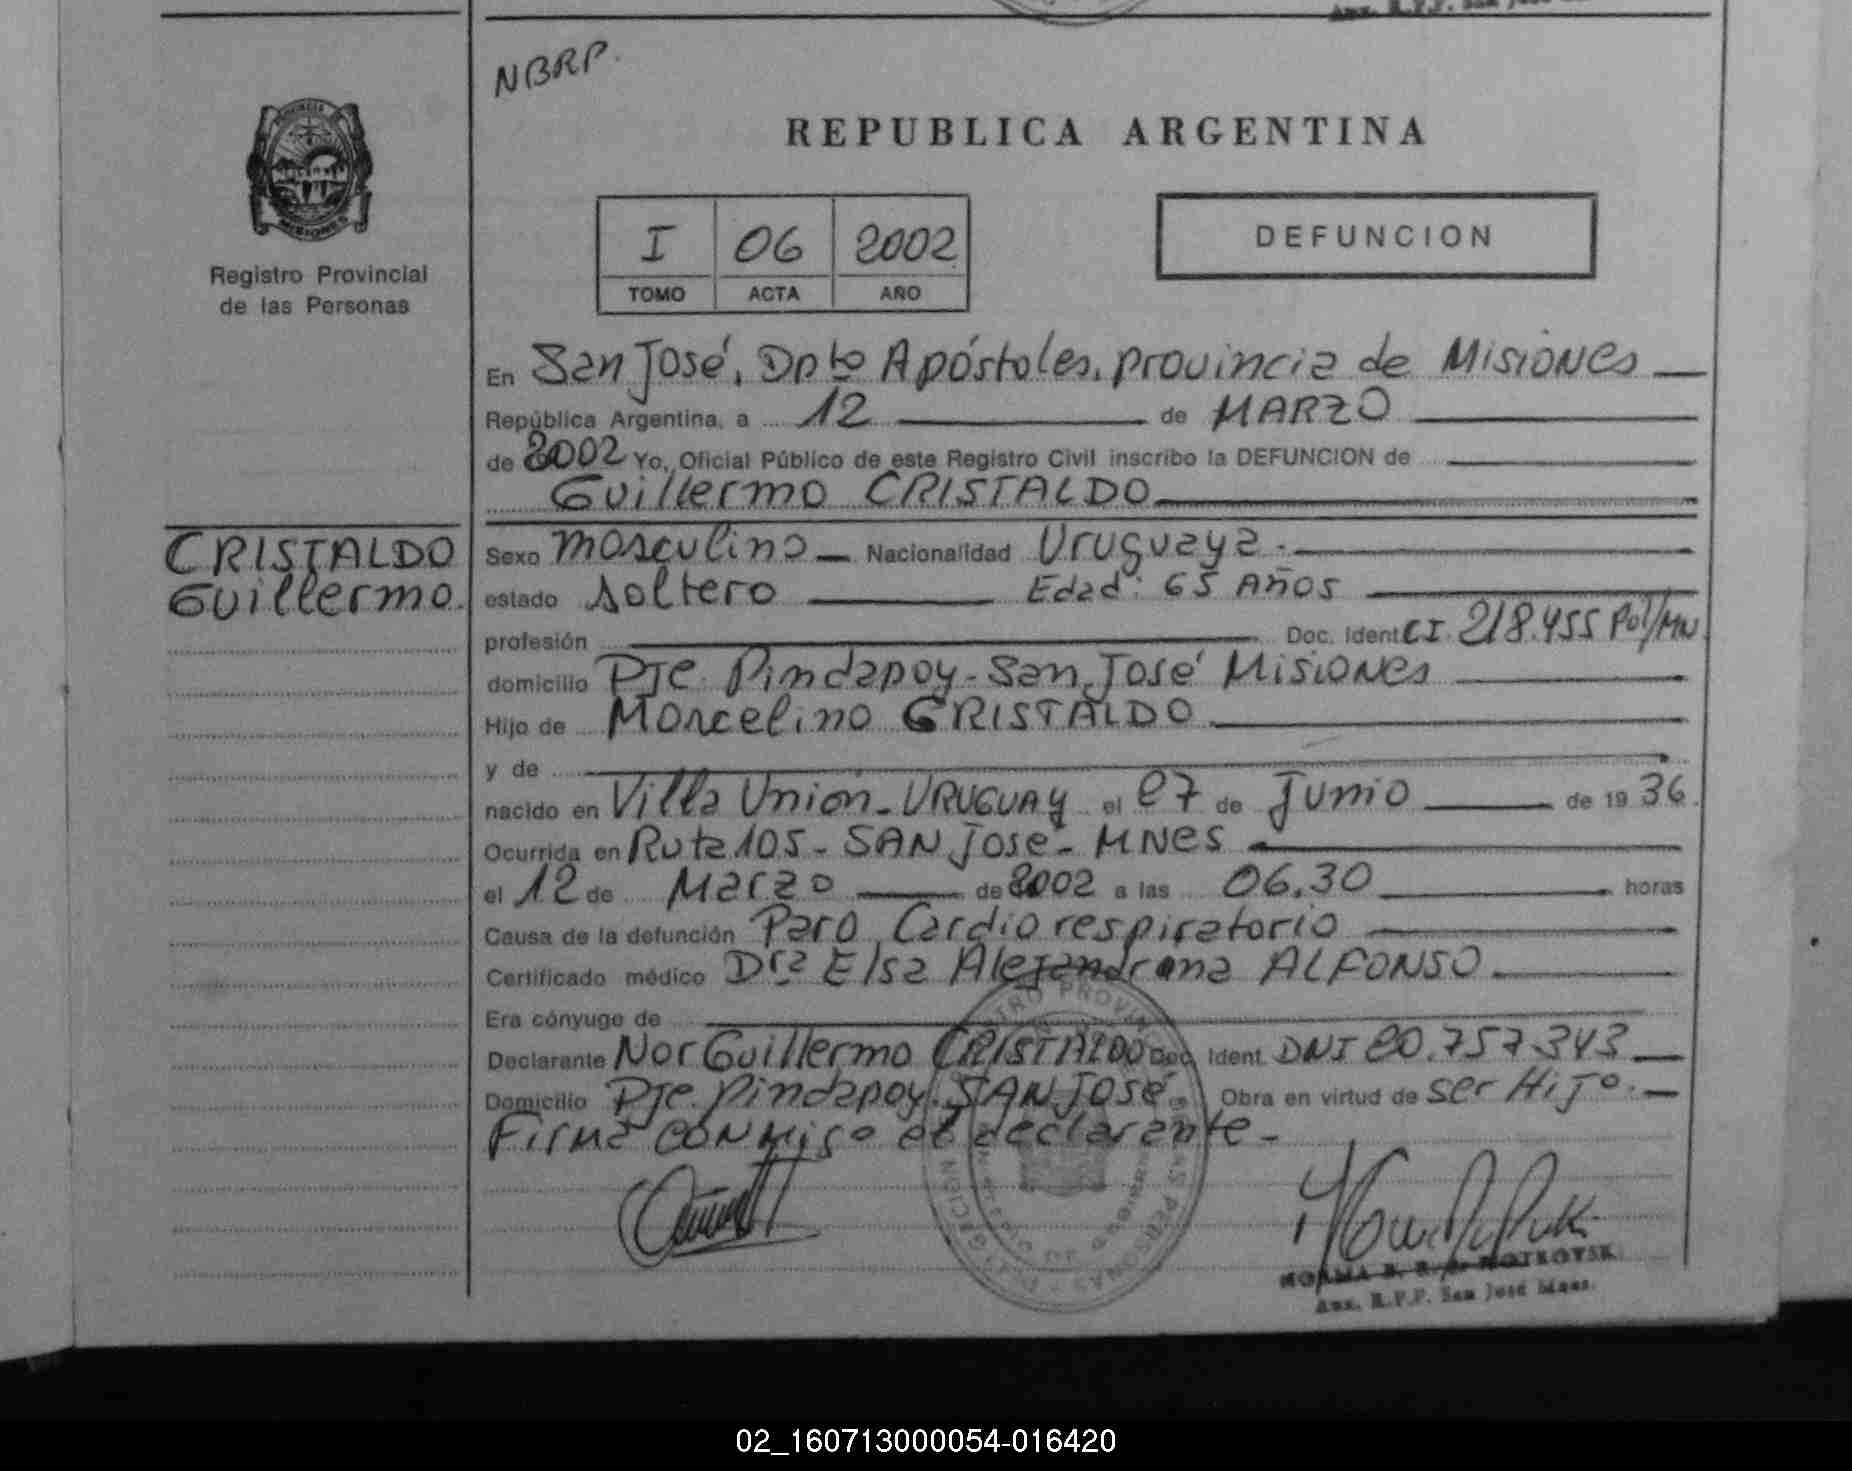 NBRP.
REPUBLICA ARGENTINA
Registro Provincial
de las Personas
I 06 2002
TOMO ACTA AÑO
DEFUNCION
En San José, Dpto Apóstoles, provincia de Misiones
República Argentina, a 12 de MARZO
de 2002 Yo, Oficial Público de este Registro Civil inscribo la DEFUNCION de
Guillermo CRISTALDO
CRISTALDO
Guillermo.
Sexo masculino Nacionalidad Uruguaya.-
estado soltero Edad: 65 Años
profesión Doc. Ident CI. 218.455 Pol/MN
domicilio Pje. Pindapoy - San José Misiones
Hijo de Marcelino CRISTALDO
y de
nacido en Villa Unión - URUGUAY el 27 de Junio de 19 36.
Ocurrida en Ruta 105 - SAN José - MNES
el 12 de Marzo de 2002 a las 06.30 horas
Causa de la defunción Paro Cardiorespiratorio
Certificado médico Dra Elsa ALFONSO.
Era cónyuge de
Declarante Nor Guillermo CRISTALDO Doc. Ident. DNI 20.757.343
Domicilio Pje. Pindapoy. SAN José. Obra en virtud de ser Hijo.-
Firma conmigo el declarante -
NORMA B. R.
Aux. R.P.P. San José Mnes.
02_160713000054-016420